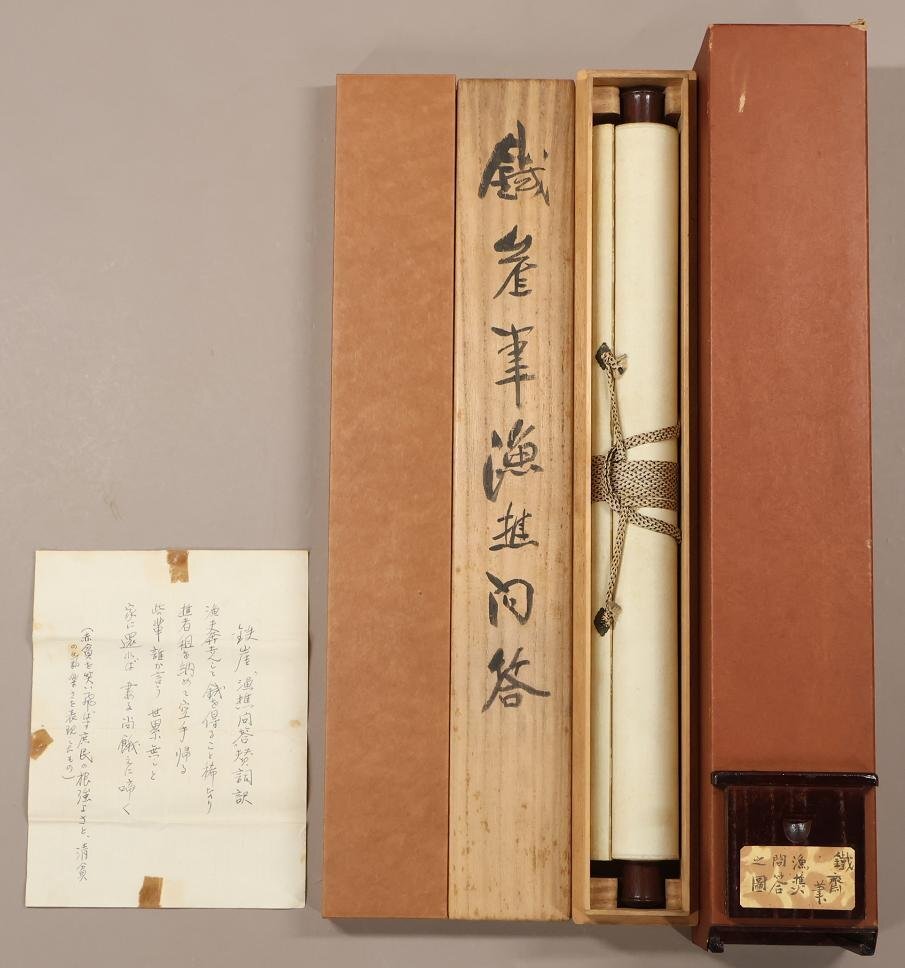 鐵齋筆
漁樵
問答
之圖
鐵崖筆漁樵問答
鉄崖、漁樵問答賛詞訳
漁夫奔走して銭を得ること稀なり
樵者租を納めて空手帰る
此輩誰か言う 世累無しと
家に還れば 妻子尚餓えに啼く
(赤貧を笑い飛ばす庶民の根強よさと、清貧
の気楽さを表現したもの)